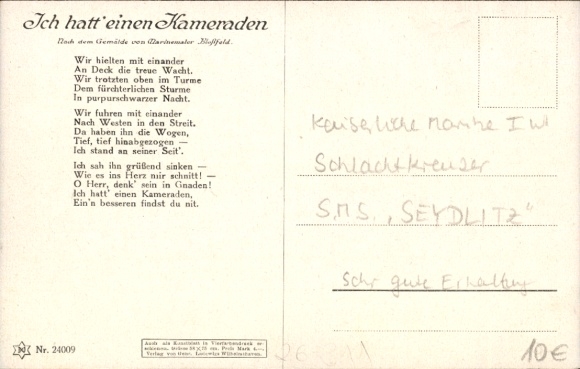 Ich hatt' einen Kameraden
Nach dem Gemälde von Marinemaler
Wir hielten mit einander
An Deck die treue Wacht.
Wir trotzten oben im Turme
Dem fürchterlichen Sturme
In purpurschwarzer Nacht.
Wir fuhren mit einander
Nach Westen in den Streit.
Da haben ihn die Wogen,
Tief, tief hinabgezogen —
Ich stand an seiner Seit'.
Ich sah ihn grüßend sinken —
Wie es ins Herz mir schnitt! —
O Herr, denk' sein in Gnaden!
Ich hatt' einen Kameraden,
Ein'n besseren findst du nit.
Nr. 24009
Auch als Kunstblatt in Vierfarbendruck er-
schienen. Grösse cm. Preis Mark
Verlag von Lothar Wilhelmshaven.
Kaiserliche Marine I WK
Schlachtkreuzer
S.M.S. „SEYDLITZ"
Sehr gute Erhaltung
10€